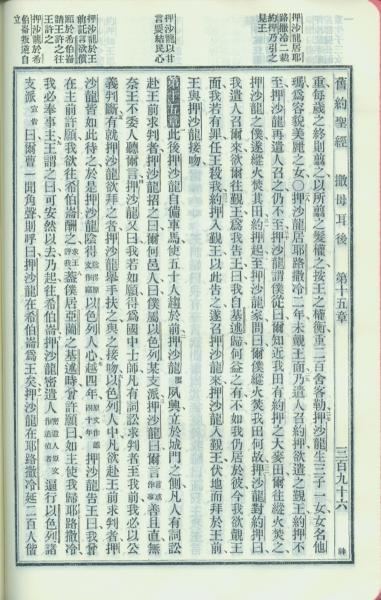 舊約聖經 撒母耳後 第十五章 三百九十六
押沙龍居耶
路撒冷二載
約押乃引之
見王
重每歲之終則翦之以所翦之髮權之按王之權衡重二百舍客勒押沙龍生三子一女女名他
瑪爲容貌美麗之女○押沙龍居耶路撒冷二年未覲王面乃遣人召約押欲遣之覲王約押不
至押沙龍再遣人召之仍不至押沙龍謂僕從曰爾知近我田有約押之大麥田爾往縱火焚之
押沙龍之僕遂縱火焚其田約押起至押沙龍家問曰爾僕縱火焚我田何故押沙龍對約押曰
我遣人召爾來欲爾往覲王爲我告王曰我自基述歸何益之有不如我仍居於彼今我欲覲王
面我若有罪任王殺我約押入覲王以此告之遂召押沙龍來押沙龍入覲王伏地而拜於王前
王與押沙龍接吻
押沙龍以甘
言要結民心
第十五章此後押沙龍自備車馬使五十人趨於前押沙龍夙興立於城門之側凡人有詞訟
赴王前求判者押沙龍招之曰爾何邑人曰僕屬以色列某支派押沙龍曰爾言善且直無
奈王不委人聽爾言押沙龍又曰我若如願得爲國中士師凡有詞訟求判者至我前我必以公
義判斷有就押沙龍欲拜之者押沙龍舉手扶之與之接吻以色列人中凡欲赴王前求判者押
押沙龍於王
前託言欲償
願於希伯崙
請王許之往
王許之
沙龍皆如此待之於是押沙龍陰得以色列人心越四年押沙龍告王曰我曾
在王前許願我欲往希伯崙酬之蓋僕居亞蘭之基述時曾許願曰如主使我歸耶路撒冷
我必奉事主王謂之曰可安然以去乃起往希伯崙押沙龍密遣人遍行以色列諸
押沙龍於希
伯崙叛道自
立
支派曰爾曹一聞角聲則呼曰押沙龍在希伯崙爲王矣押沙龍在耶路撒冷延二百人偕